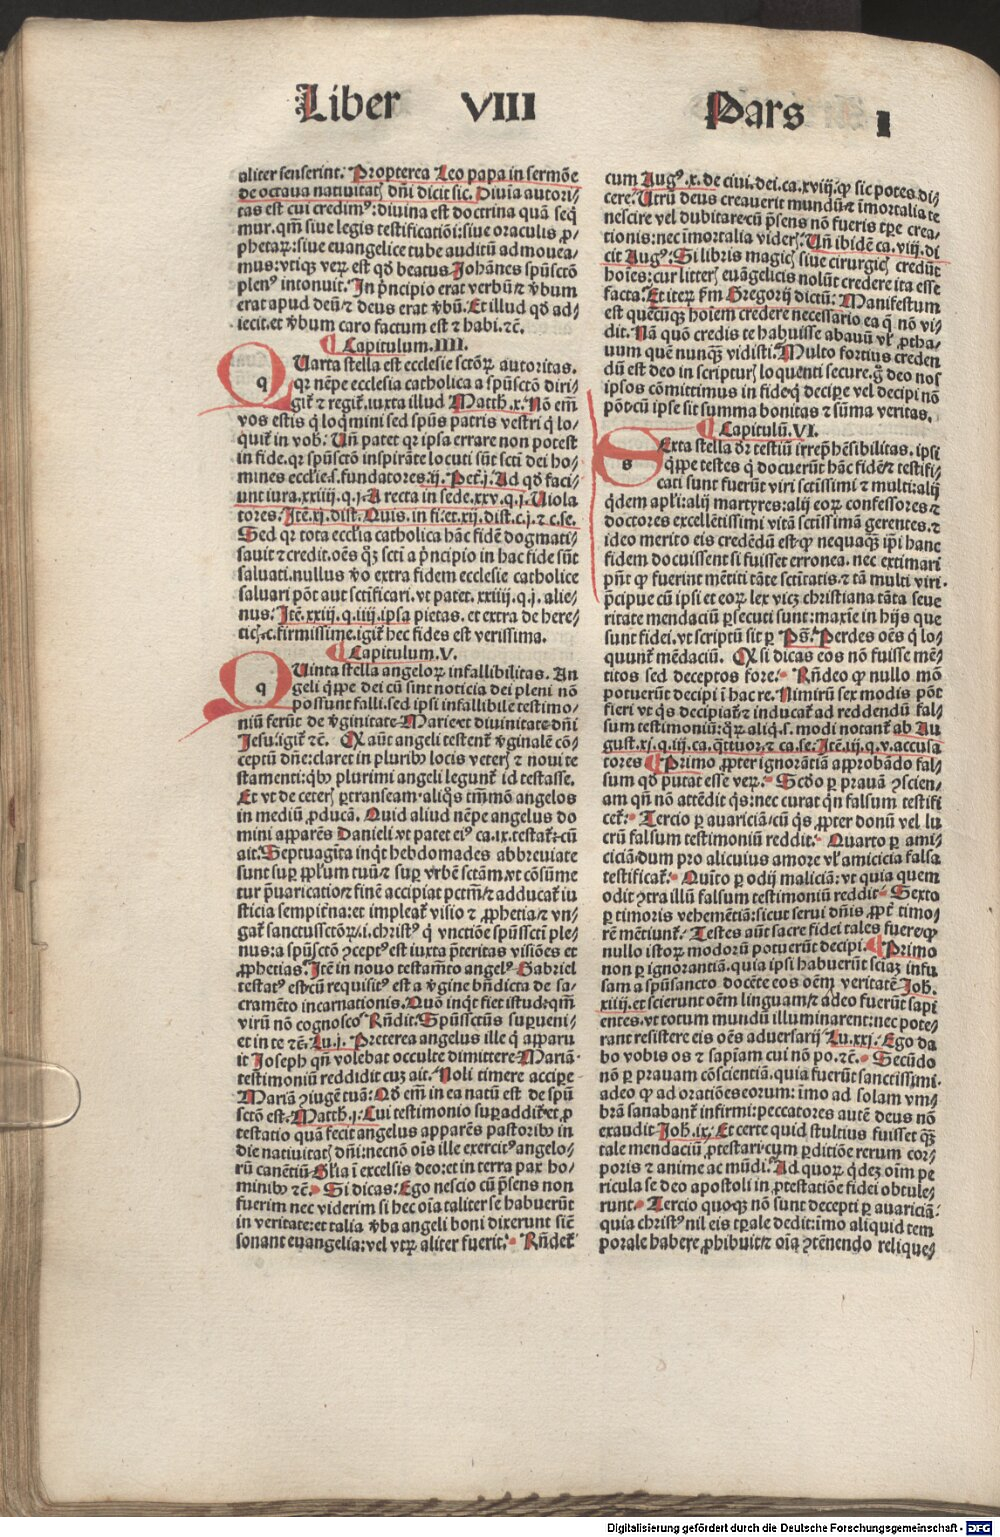 Liber VIII Pars I
aliter senserint. Propterea Leo papa in sermōe
de octaua natiuitatꝭ dn̄i dicit sic. Diuīa autori⸗
tas est cui credimꝰ: diuina est doctrina quā seq̄
mur. qm̄ siue legis testificatiōi: siue oraculis ꝓ⸗
phetaꝝ: siue euangelice tube auditū admouea⸗
mus: vtiqꝫ veꝝ est qđ beatus Johānes spūsctō
plenꝰ intonuit. In p̄ncipio erat verbū ⁊ v̄bum
erat apud deū ⁊ deus erat v̄bū. Et illud qđ ad⸗
iecit. et v̄bum caro factum est ⁊ habi. ⁊c̄.
Capitulum. IIII.
q Uarta stella est ecclesie sctōꝝ autoritas.
qꝛ nēpe ecclesia catholica a spūsctō diri⸗
git̄ ⁊ regit̄. iuxta illud Matth. x. Nō em̄
vos estis q̇ loq̄mini sed spūs patris vestri q̇ lo⸗
quit̄ in vob̄. Un̄ patet qꝛ ipsa errare non potest
in fide. qꝛ spūsctō inspirāte locuti sūt sctī dei ho⸗
mines eccl̄ie. s. fundatores. ij. Pet̄. j. Ad qđ faci⸗
unt iura. xxiiij. q. j. A recta in sede. xxv. q. j. Uiola
tores. Itē. xj. dist. Quis. in fi. et. xij. dist. c. j. ⁊ c. se.
Sed qꝛ tota eccl̄ia catholica hāc fidē dogmati⸗
sauit ⁊ credit. oēs q̄ꝛ sctī a p̄ncipio in hac fide sūt
saluati. nullus v̄o extra fidem ecclesie catholice
saluari pōt aut sctificari. vt patet. xxiiij. q. j. alie⸗
nus. Itē. xxiij. q. iiij. ipsa pietas. et extra de here⸗
ticꝭ. c. firmissime. igit̄ hec fides est verissima.
Capitulum. V.
q Uinta stella angeloꝝ infallibilitas. An
geli q̄ppe dei cū sint noticia dei pleni nō
possunt falli. sed ipsi infallibile testimo⸗
niū ferūt de v̄ginitate Marie et diuinitate dn̄i
Jesu. igit̄ ⁊c̄. Qꝙ aūt angeli testent̄ v̄ginalē cō⸗
ceptū dn̄e: claret in pluribꝰ locis veterꝭ ⁊ noui te
stamenti: q̇bꝰ plurimi angeli legunt̄ id testasse.
Et vt de ceterꝭ ꝑtranseam. aliq̇s tm̄mō angelos
in mediū ꝓducā. Quid aliud nēpe angelus do
mini apparēs Danieli. vt patet eiꝰ ca. ix. testat̄: cū
ait. Septuagīta inq̇t hebdomades abbreuiate
sunt suꝑ ppl̄um tuū ⁊ suꝑ vrbē sctām. vt cōsūme
tur p̄uaricatio ⁊ finē accipiat pctm̄ ⁊ adducat̄ iu
sticia sempit̄na: et impleat̄ visio ⁊ ꝓphetia ⁊ vn⸗
gat̄ sanctus sctōꝝ. i. christꝰ q̇ vnctiōe spūssctī ple⸗
nus: a spūsctō ꝯceptꝰ est iuxta p̄teritas visiōes et
ꝓphetias. Itē in nouo testam̄to angelꝰ Gabriel
testatꝰ est. cū requisitꝰ est a v̄gine bn̄dicta de sa⸗
cramēto incarnationis. Quō inq̇t fiet istud. qm̄
virū nō cognosco. Rn̄dit. Spūssctūs suꝑueni⸗
et in te ⁊c̄. Lu. j. Preterea angelus ille q̇ apparu
it Joseph qn̄ volebat occulte dimittere Mariā
testimoniū reddidit cuꝫ ait. Noli timere acciꝑe
Mariā ꝯiugē tuā: Qđ em̄ in ea natū est de spū
sctō est. Matth. j. Cui testimonio suꝑaddit̄ et ꝓ
testatio quā fecit angelus apparēs pastoribꝰ in
die natiuitatꝭ dn̄i: necnō oīs ille exercitꝰ angelo⸗
rū canētiū Gl̄ia ī excelsis deo: et in terra pax ho⸗
minibꝰ ⁊c̄. Si dicas: Ego nescio cū p̄sens non
fuerim nec viderim si hec oīa taliter se habuerūt
in veritate: et talia v̄ba angeli boni dixerunt sic̄
sonant euangelia: vel vtꝝ aliter fuerit. Rn̄det̄
cum Augꝰ. x. de ciui. dei. ca. xviij. ꝙ sic potes di⸗
cere. Utrū deus creauerit mundū ⁊ īmortalia te
nescire vel dubitare. cū p̄sens nō fueris tꝑe crea⸗
tionis: nec īmortalia viderꝭ. Un̄ ibidē ca. viij. di
cit Augꝰ: Si libris magicꝭ siue cirurgicꝭ credūt
hoīes: cur litterꝭ euāgelicis nolūt credere ita esse
facta. Et iteꝝ fm̄ Gregorij dictū: Manifestum
est quēcūqꝫ hoīem credere necessario ea q̄ nō vi⸗
dit. Nā quō credis te habuisse abauū vl̄ ꝓtha⸗
uum quē nunqꝫ vidisti. Multo fortius creden
dū est deo in scripturꝭ loquenti secure. ḡ deo nos
ipsos cōmittimus in fide q̇ deciꝑe vel decipi nō
pōt cū ipse sit summa bonitas ⁊ sūma veritas.
Capitulū. VI.
s Exta stella dr̄ testiū irrep̄hēsibilitas. ipsi
q̄ppe testes q̇ docuerūt hāc fidē ⁊ testifi⸗
cati sunt fuerūt viri sctissimi ⁊ multi: alij
q̇dem apl̄i: alij martyres: alij eoꝝ confessores ⁊
doctores excellētissimi vitā sctissimā gerentes. ⁊
ideo merito eis credēdū est. ꝙ nequaqꝫ ip̄i hanc
fidem docuissent si fuisset erronea. nec extimari
pn̄t ꝙ fuerint mētiti tāte sctītatis ⁊ tā multi viri.
p̄cipue cū ipsi et eoꝝ lex vicꝫ christiana tāta seue
ritate mendaciū ꝑsecuti sunt: maxīe in hijs que
sunt fidei. vt scriptū sit ꝑ Ps̄. Perdes oēs q̇ lo⸗
quunt̄ mēdaciū. Qꝙ si dicas eos nō fuisse mē⸗
titos sed deceptos fore. Rn̄deo ꝙ nullo mō
potuerūt decipi ī hac re. Nimirū sex modis pōt
fieri vt q̇s decipiat̄ ⁊ inducat̄ ad reddendū fal⸗
sum testimoniū: q̄ꝝ aliq̇. s. modi notant̄ ab Au
gust. xj. q. iij. ca. q̄ttuor. ⁊ ca. se. Itē. iij. q. v. accusa
tores Primo ꝓpter ignorātiā approbādo fal⸗
sum qđ putat esse veꝝ. Scđo ꝑ prauā ꝯscien⸗
am qn̄ nō attēdit q̇s: nec curat qn̄ falsum testifi
cet̄. Tercio ꝑ auariciā: cū q̇s ꝓpter donū vel lu
crū falsum testimoniū reddit. Quarto ꝑ ami⸗
ciciā. dum pro alicuius amore vl̄ amicicia falsa
testificat̄. Quīto ꝑ odij maliciā: vt quia quem
odit ꝯtra illū falsum testimoniū reddit. Sexto
ꝑ timoris vehemētiā: sicut serui dn̄is ꝓpt̄ timo⸗
rē mētiunt̄. Testes aūt sacre fidei tales fuere. ꝙ
nullo istoꝝ modorū potuerūt decipi. Primo
non ꝑ ignorantiā. quia ipsi habuerūt sciaꝫ infu
sam a spūsancto docēte eos oēm veritatē Joh̄.
xiiij. et scierunt oēm linguam ⁊ adeo fuerūt sapi
entes. vt totum mundū illuminarent: nec pote⸗
rant resistere eis oēs aduersarij Lu. xxj. Ego da
bo vobis os ⁊ sapīam cui nō po. ⁊c̄. Secūdo
nō ꝑ prauam cōscientiā. quia fuerūt sanctissimi.
adeo ꝙ ad oratiōes eorum: īmo ad solam vm⸗
brā sanabant̄ infirmi: peccatores autē deus nō
exaudit Joh. ix. Et certe quid stultius fuisset qꝫ
tale mendaciū ꝓtestari. cum ꝑditiōe rerum cor⸗
poris ⁊ anime ac mūdi. Ad quoꝝ q̇dez oīm pe
ricula se deo apostoli in ꝓtestatiōe fidei obtule⸗
runt. Tercio quoqꝫ nō sunt decepti ꝑ auariciā:
quia christꝰ nil eis tꝑale dedit: īmo aliquid tem
porale habere ꝓhibuit ⁊ oīa ꝯtēnendo relique⸗
Digitalisierung gefördert durch die Deutsche Forschungsgemeinschaft - DFG